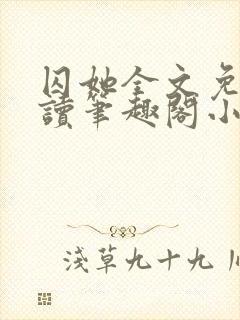 囚她全文免
讀筆趣閣小
淺草九十九